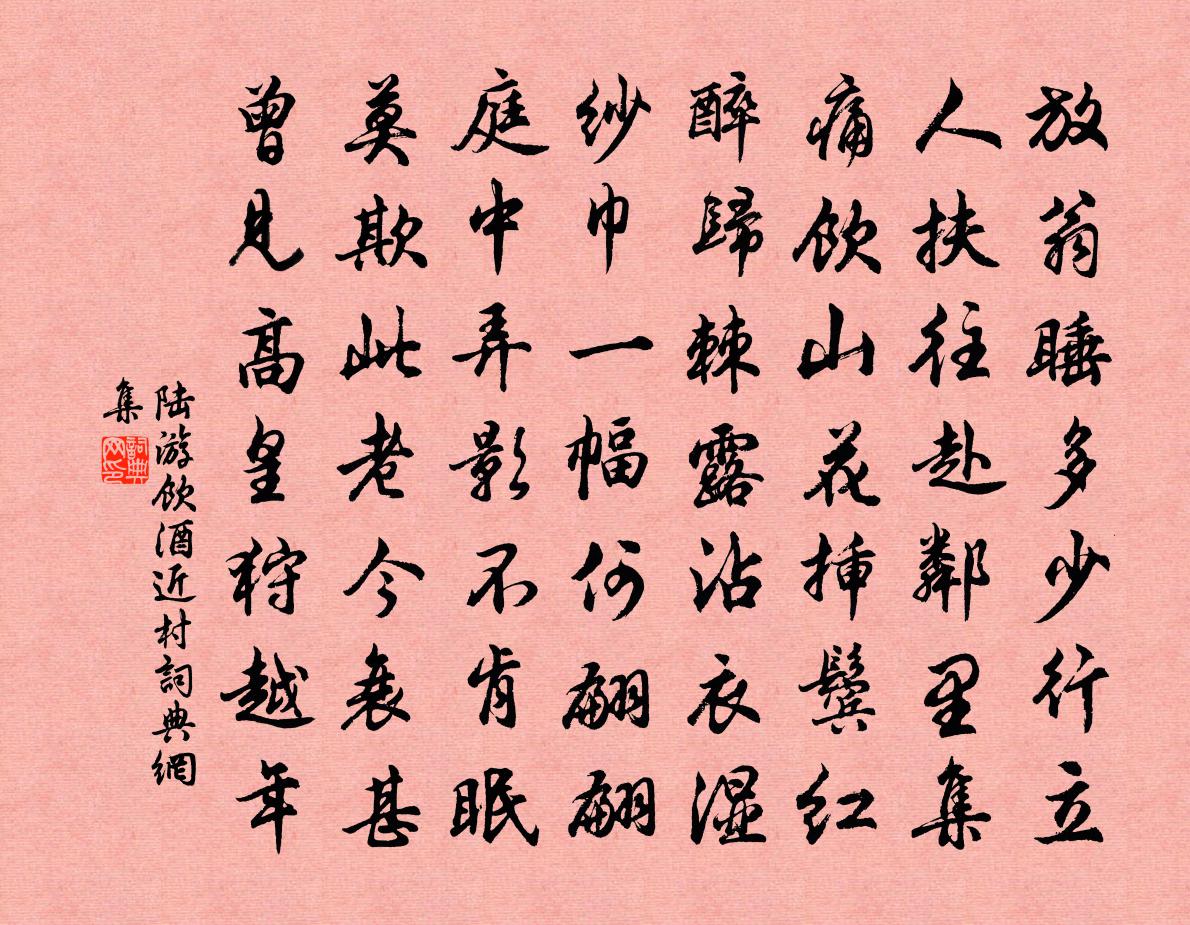 放翁睡多少行立
人扶往赴鄰里集
痛飲山花插鬓红
醉歸棘露沾衣湿
纱巾一幅何翩翩
庭中弄影不肯眠
莫欺此老今衰甚
曾見高皇狩越年
陆游飲酒近村詞典網
集
詞典网印